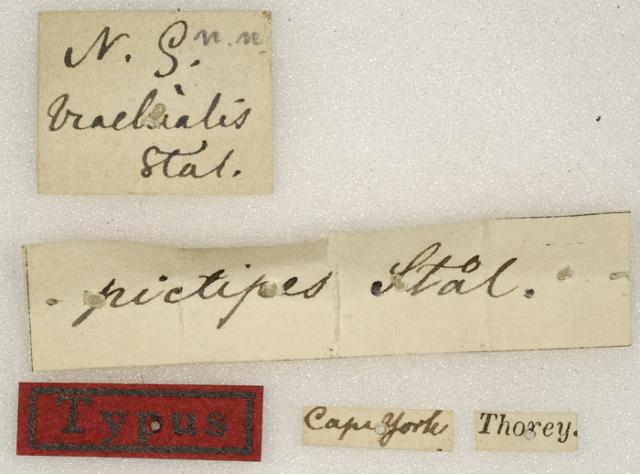 N. G. n. n.
brachialis
Stål.
pictipes Stål.
Typus
Cape York
Thorey.